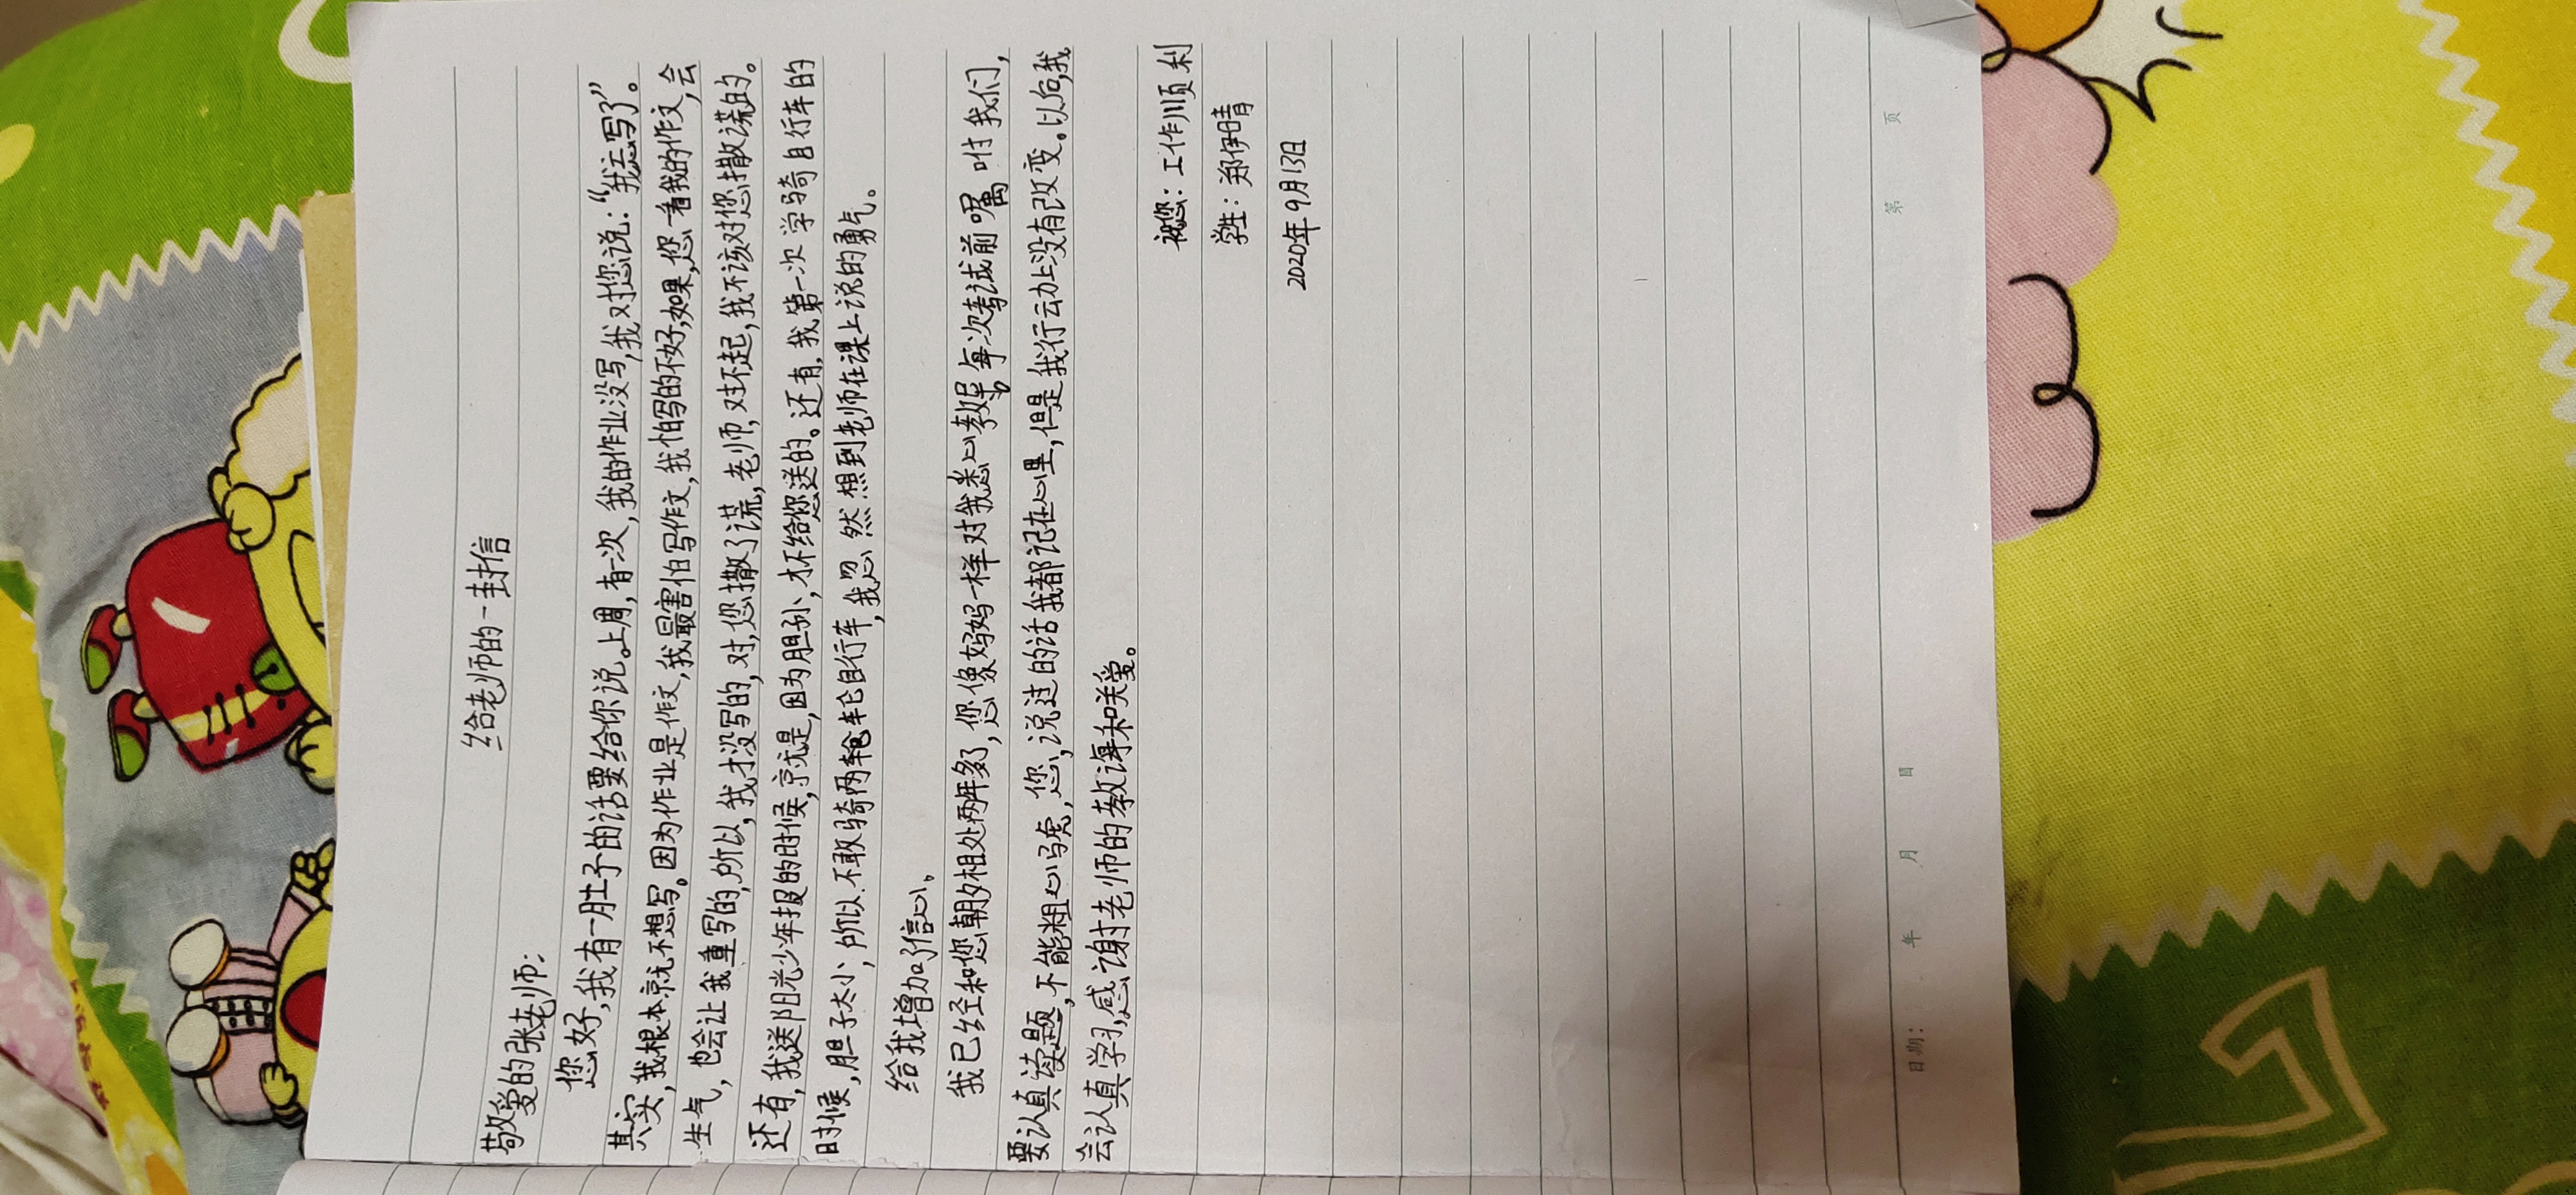 给老师的一封信
敬爱的张老师:
您好,我有一肚子的话要给你说。上周,有一次,我的作业没写,我对您说:“我忘写了”。
其实,我根本就不想写。因为作业是作文,我最害怕写作文,我怕写的不好,如果,您看我的作文,会
生气,也会让我重写的,所以,我才没写的,对,您撒了谎,老师,对不起,我不该对您撒谎的。
还有,我送阳光少年报的时候,就是,因为胆孙小,才不给您送的。还有,我第一次学骑自行车的
时候,胆子太小,所以不敢骑两轮自行车,我忽然想到老师在课上说的勇气。
给我增加了信心。
我已经和您朝夕相处两年多了,您像妈妈一样对我悉心教导,每次考试前嘱咐我们,
要认真读题,不能粗心马虎,您,说过的话我都记在心里,但是我行动上没有改变。以后,我
会认真学习,感谢老师的教诲和关爱。
祝您:工作顺利
学生:郑伊晴
2020年9月13日
日期: 年 月 日 第 页